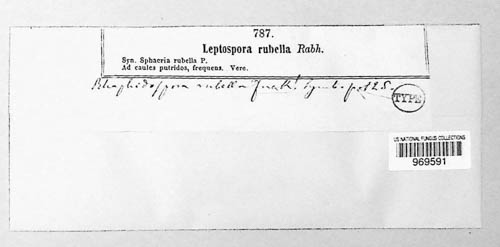 787.
Leptospora rubella Rabh.
Syn. Sphaeria rubella P.
Ad caules putridos, frequens. Vere.
Rhaphidospora rubella Fuck! Symb. p. 125.
TYPE
US NATIONAL FUNGUS COLLECTIONS
969591